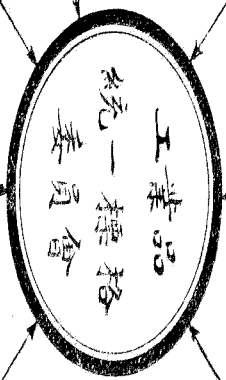 工業品
統一格
委員會